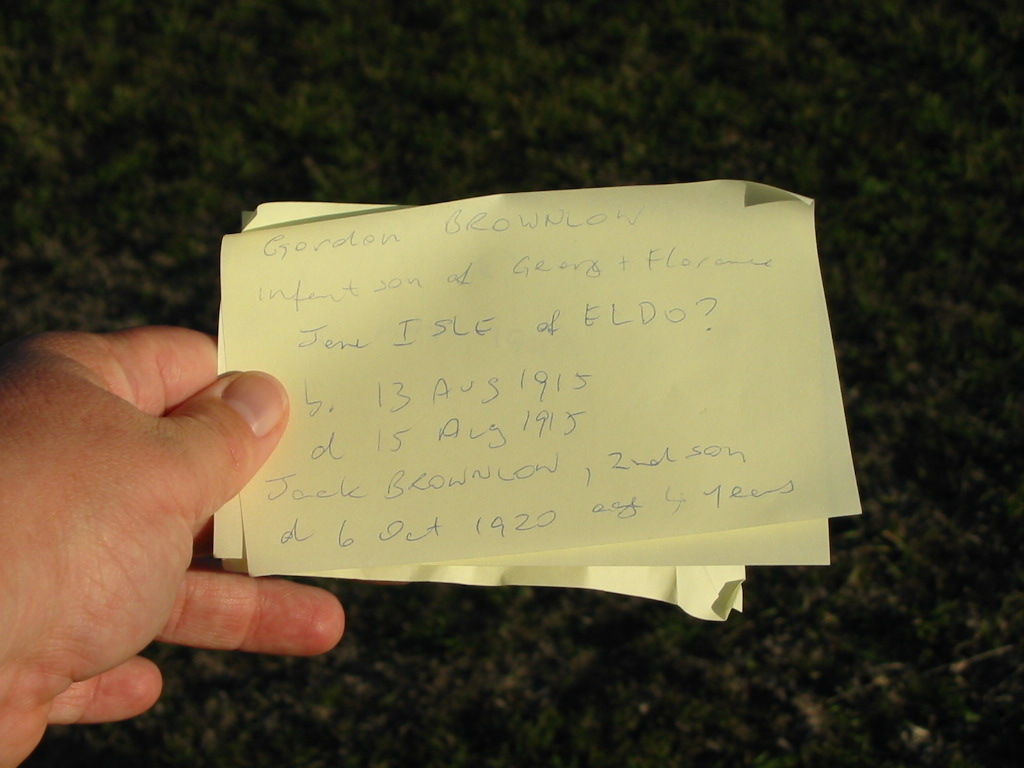 Gordon BROWNLOW
infant son of Georg + Florence
Jane ISLE of ELDO?
b. 13 Aug 1915
d 15 Aug 1915
Jack BROWNLOW, 2nd son
d 6 Oct 1920 age 4 years